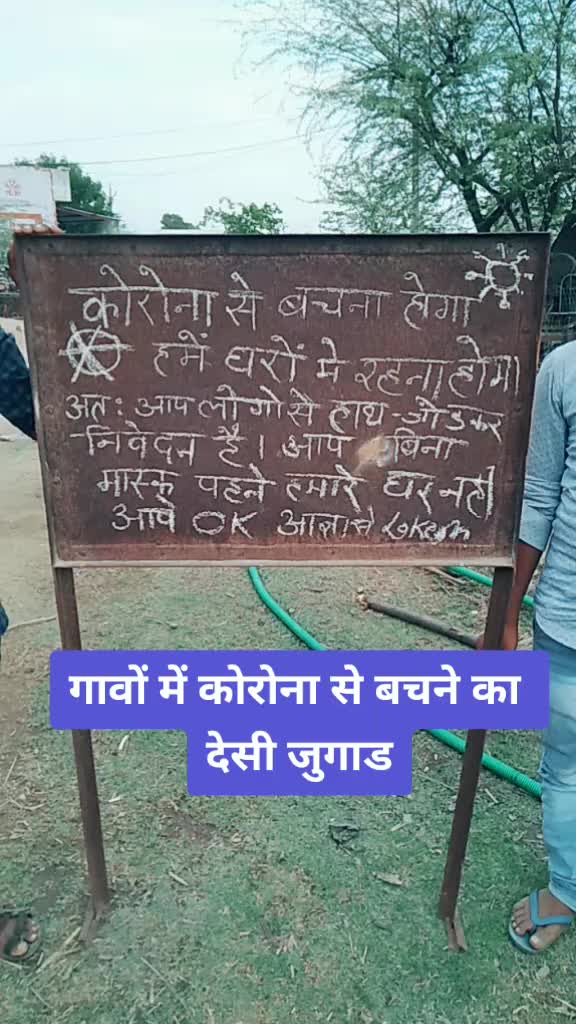 कोरोना से बचना होगा
हमें घरों मे रहना होगा
अतः आप लोगो से हाथ जोडकर
निवेदन है। आप बिना
मास्क पहने हमारे घर नही
आये OK आज्ञा से
गावों में कोरोना से बचने का
देसी जुगाड